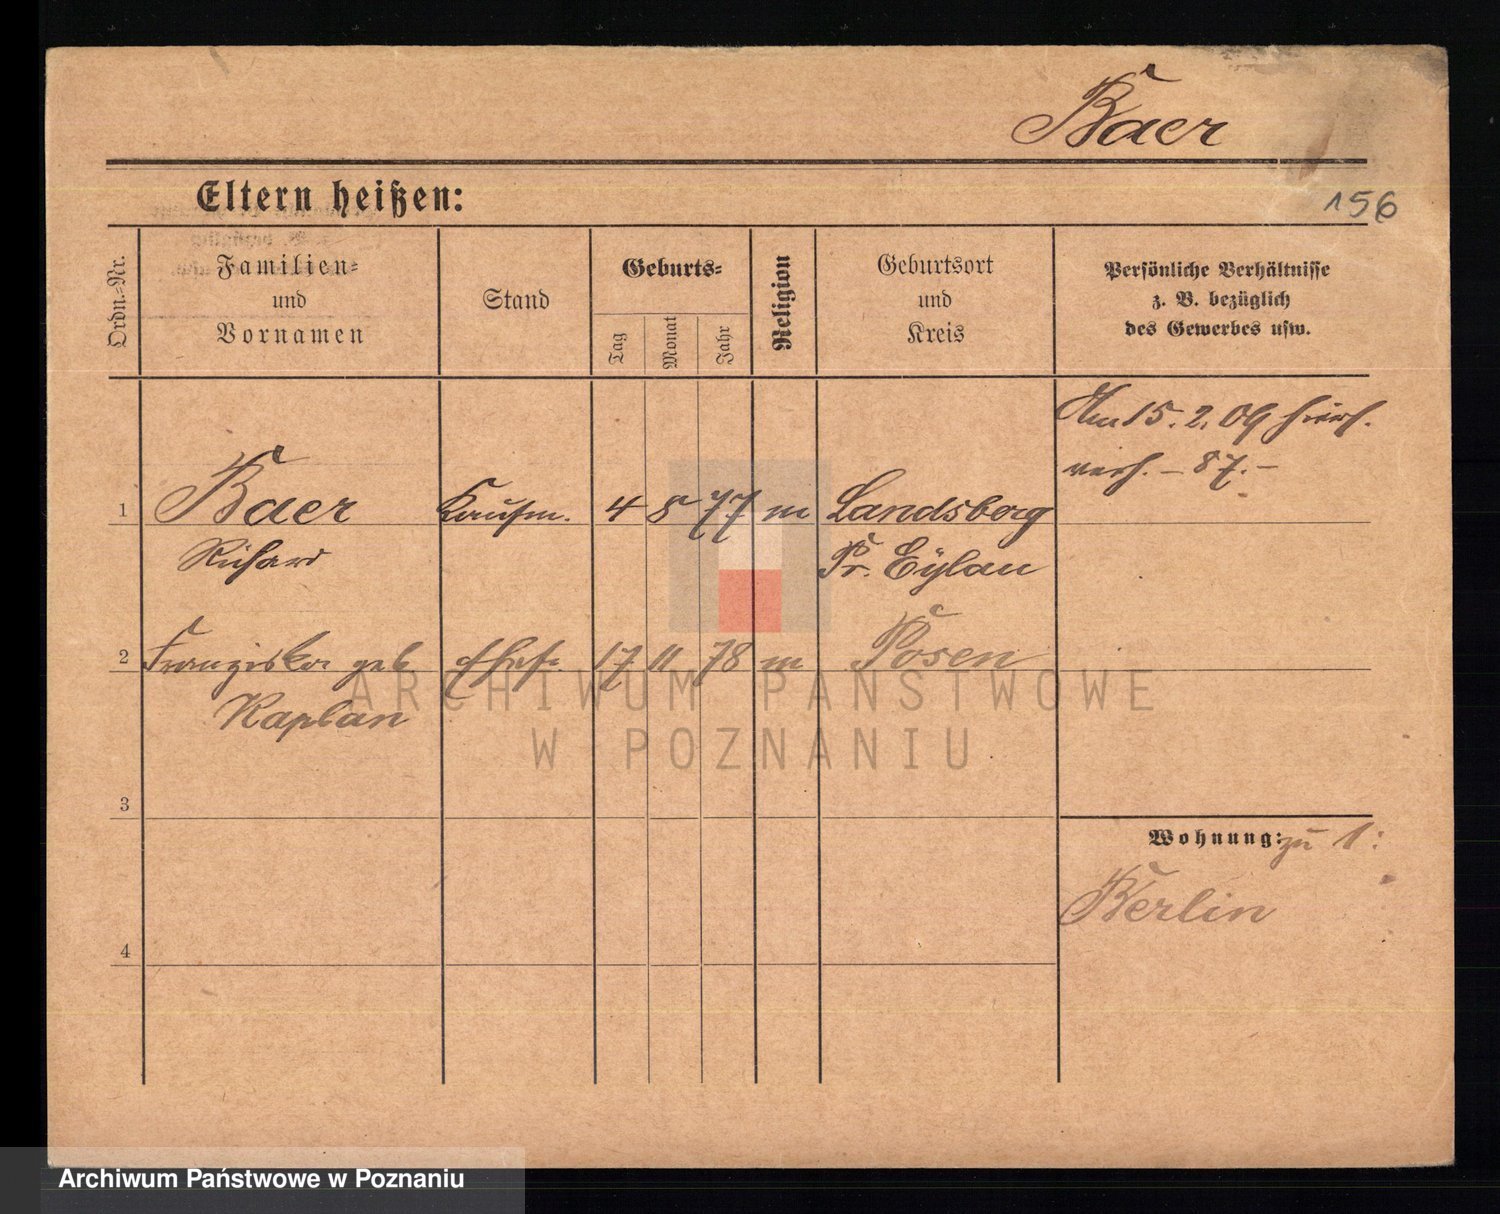 Baer
Eltern heißen:
156
Ordn.-Nr.
Familien-
und
Vornamen
Stand
Geburts-
Tag
Monat
Jahr
Religion
Geburtsort
und
Kreis
Persönliche Verhältnisse
z. B. bezüglich
des Gewerbes usw.
Am 15. 2. 09
verh. – 87. –
1 Baer Kaufm. 4 8 77 m Landsberg
Richard Pr. Eylau
2 Franziska geb Ehefr. 17 11 78 m Posen
Kaplan
ARCHIWUM PAŃSTWOWE
W POZNANIU
3
Wohnung: zu 1:
Berlin
4
Archiwum Państwowe w Poznaniu